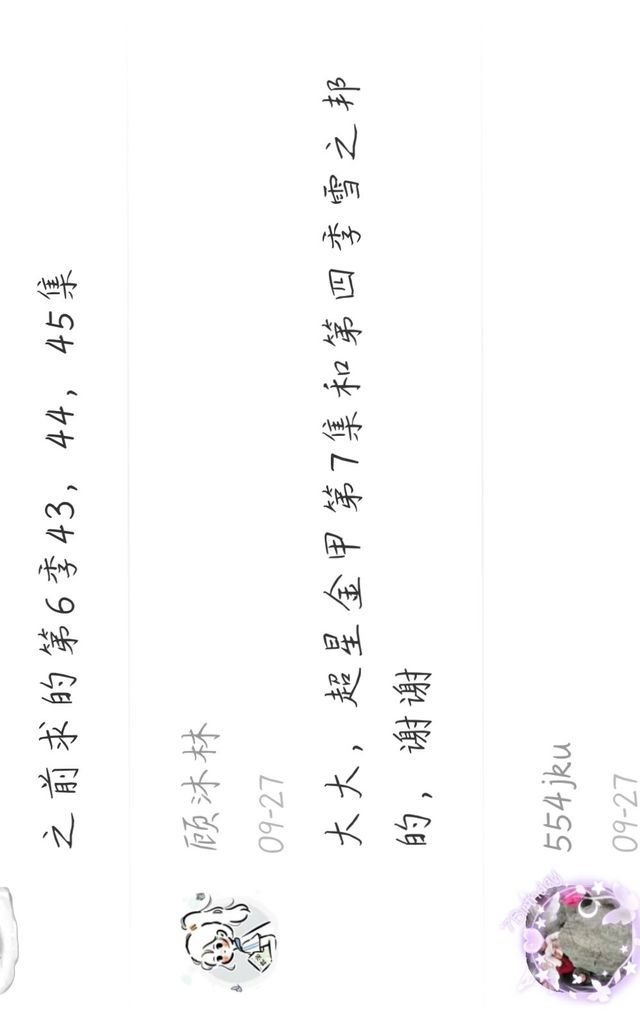 之前求的第6季43，44，45集
顾沐林
09-27
大大，超星金甲第7集和第四季雪之邦
的，谢谢
554jku
09-27